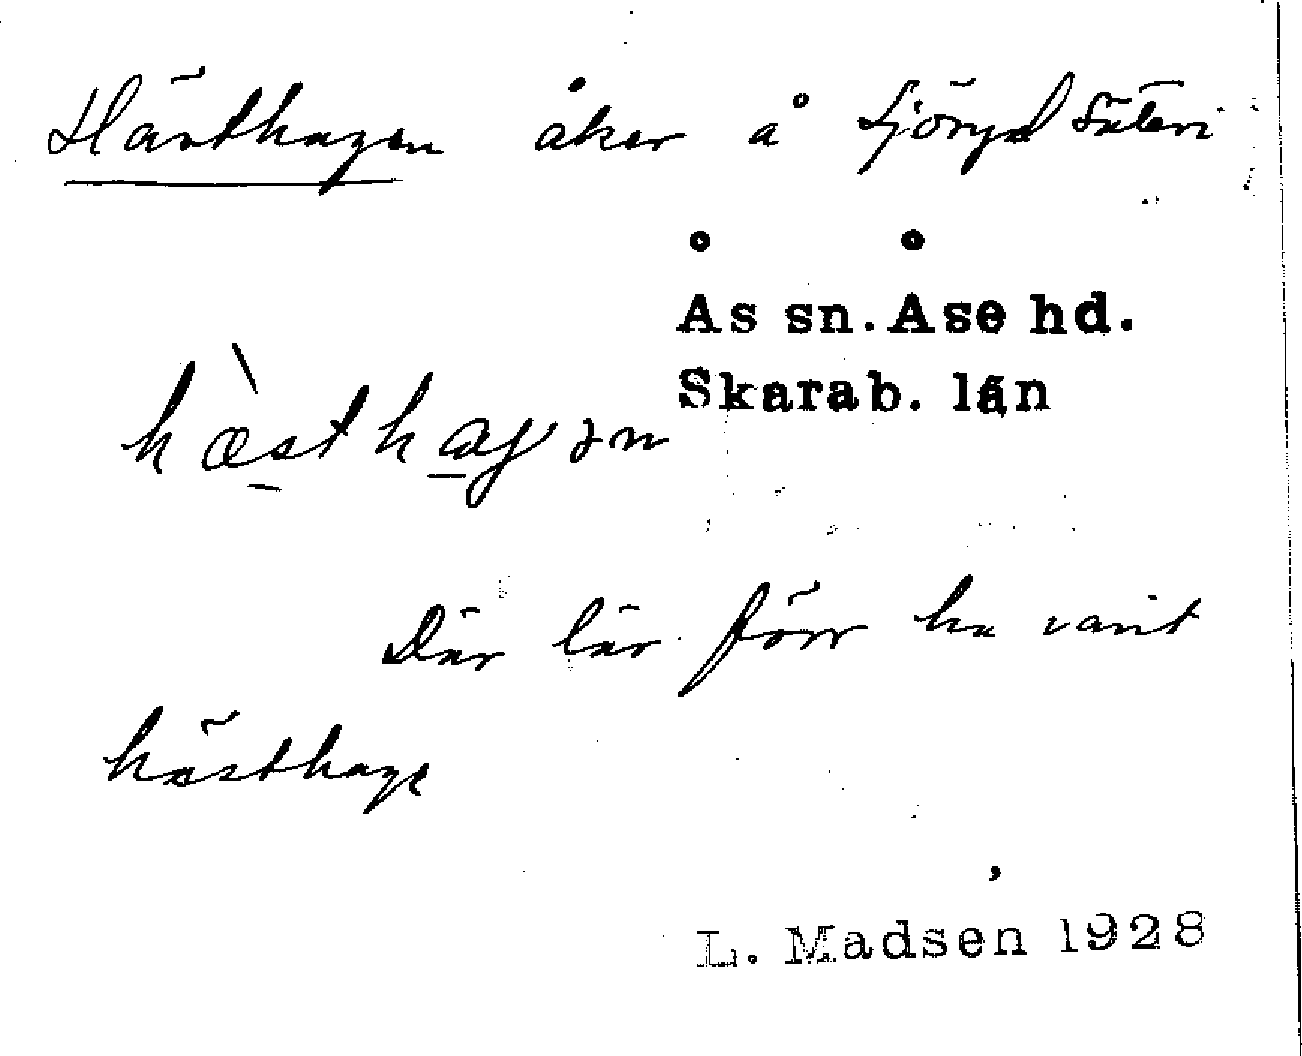 Hästhagen åker å Sjöryd Säteri
Ås sn. Åse hd.
Skarab. län
hæ̀sthagən
Där lär förr ha varit
hästhage
L. Madsén 1928